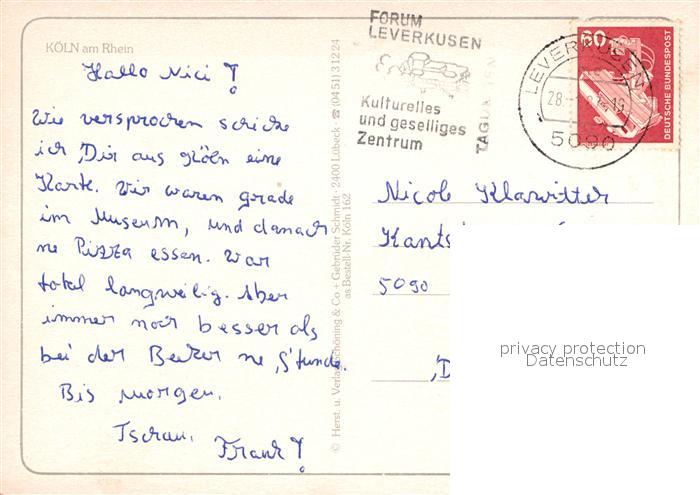 KÖLN am Rhein
Hallo Nici!
Wie versprochen schicke
ich Dir aus Köln eine
Karte. Wir waren gerade
im Museum, und danach
ne Pizza essen. War
total langweilig. Aber
immer noch besser als
bei der Becker ne Stunde.
Bis morgen.
Tschau.
Frank!
© Herst. u. Verlag Schöning & Co + Gebrüder Schmidt · 2400 Lübeck · ☎ (0451) 31224
as Bestell-Nr. Köln 162
FORUM
LEVERKUSEN
Kulturelles
und geselliges
Zentrum
LEVERKUSEN
5090
60
DEUTSCHE BUNDESPOST
Nicole Klawitter
5090
privacy protection
Datenschutz